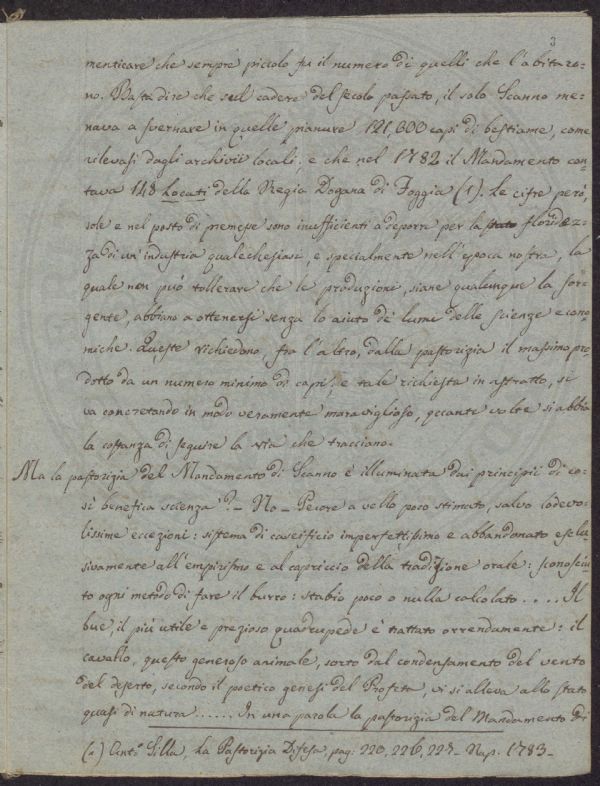 3
menticare che sempre piccolo fu il numero di quelli che l'abitaro-
no. Basta dire che sul cadere del secolo passato, il solo Scanno me-
nava a svernare in quelle pianure 121,000 capi di bestiame, come
rilevasi dagli archivii locali, e che nel 1782 il Mandamento con-
tava 148 Locati della Regia Dogana di Foggia (1). Le cifre però,
sole e nel posto di premesse sono insufficienti a deporre per la stato floridez-
za di un'industria qualechesiasi, e specialmente nell'epoca nostra, la
quale non può tollerare che le produzioni, siane qualunque la sor-
gente, abbiano a ottenersi senza lo aiuto de' lumi delle scienze econo-
miche. Queste richiedono, fra l'altro, dalla pastorizia il massimo pro-
dotto da un numero minimo di capi, e tale richiesta in astratto, si
va concretando in modo veramente maraviglioso, quante volte si abbia
la costanza di seguire la via che tracciano.
Ma la pastorizia del Mandamento di Scanno è illuminata dai principii di co-
sì benefica scienza? - No - Pecore a vello poco stimato, salvo lodevo-
lissime eccezioni: sistema di caseificio imperfettissimo e abbandonato esclu-
sivamente all'empirismo e al capriccio della tradizione orale: sconosciu-
to ogni metodo di fare il burro: stabio poco o nulla calcolato .... Il
bue, il più utile e prezioso quadrupede è trattato orrendamente: il
cavallo, questo generoso animale, sorto dal condensamento del vento
del deserto, secondo il poetico genesi del Profeta, vi si alleva allo stato
quasi di natura ...... In una parola la pastorizia del Mandamento di
(1) Ant.° Silla, La Pastorizia Difesa, pag: 220, 226, 227 - Nap. 1783 -